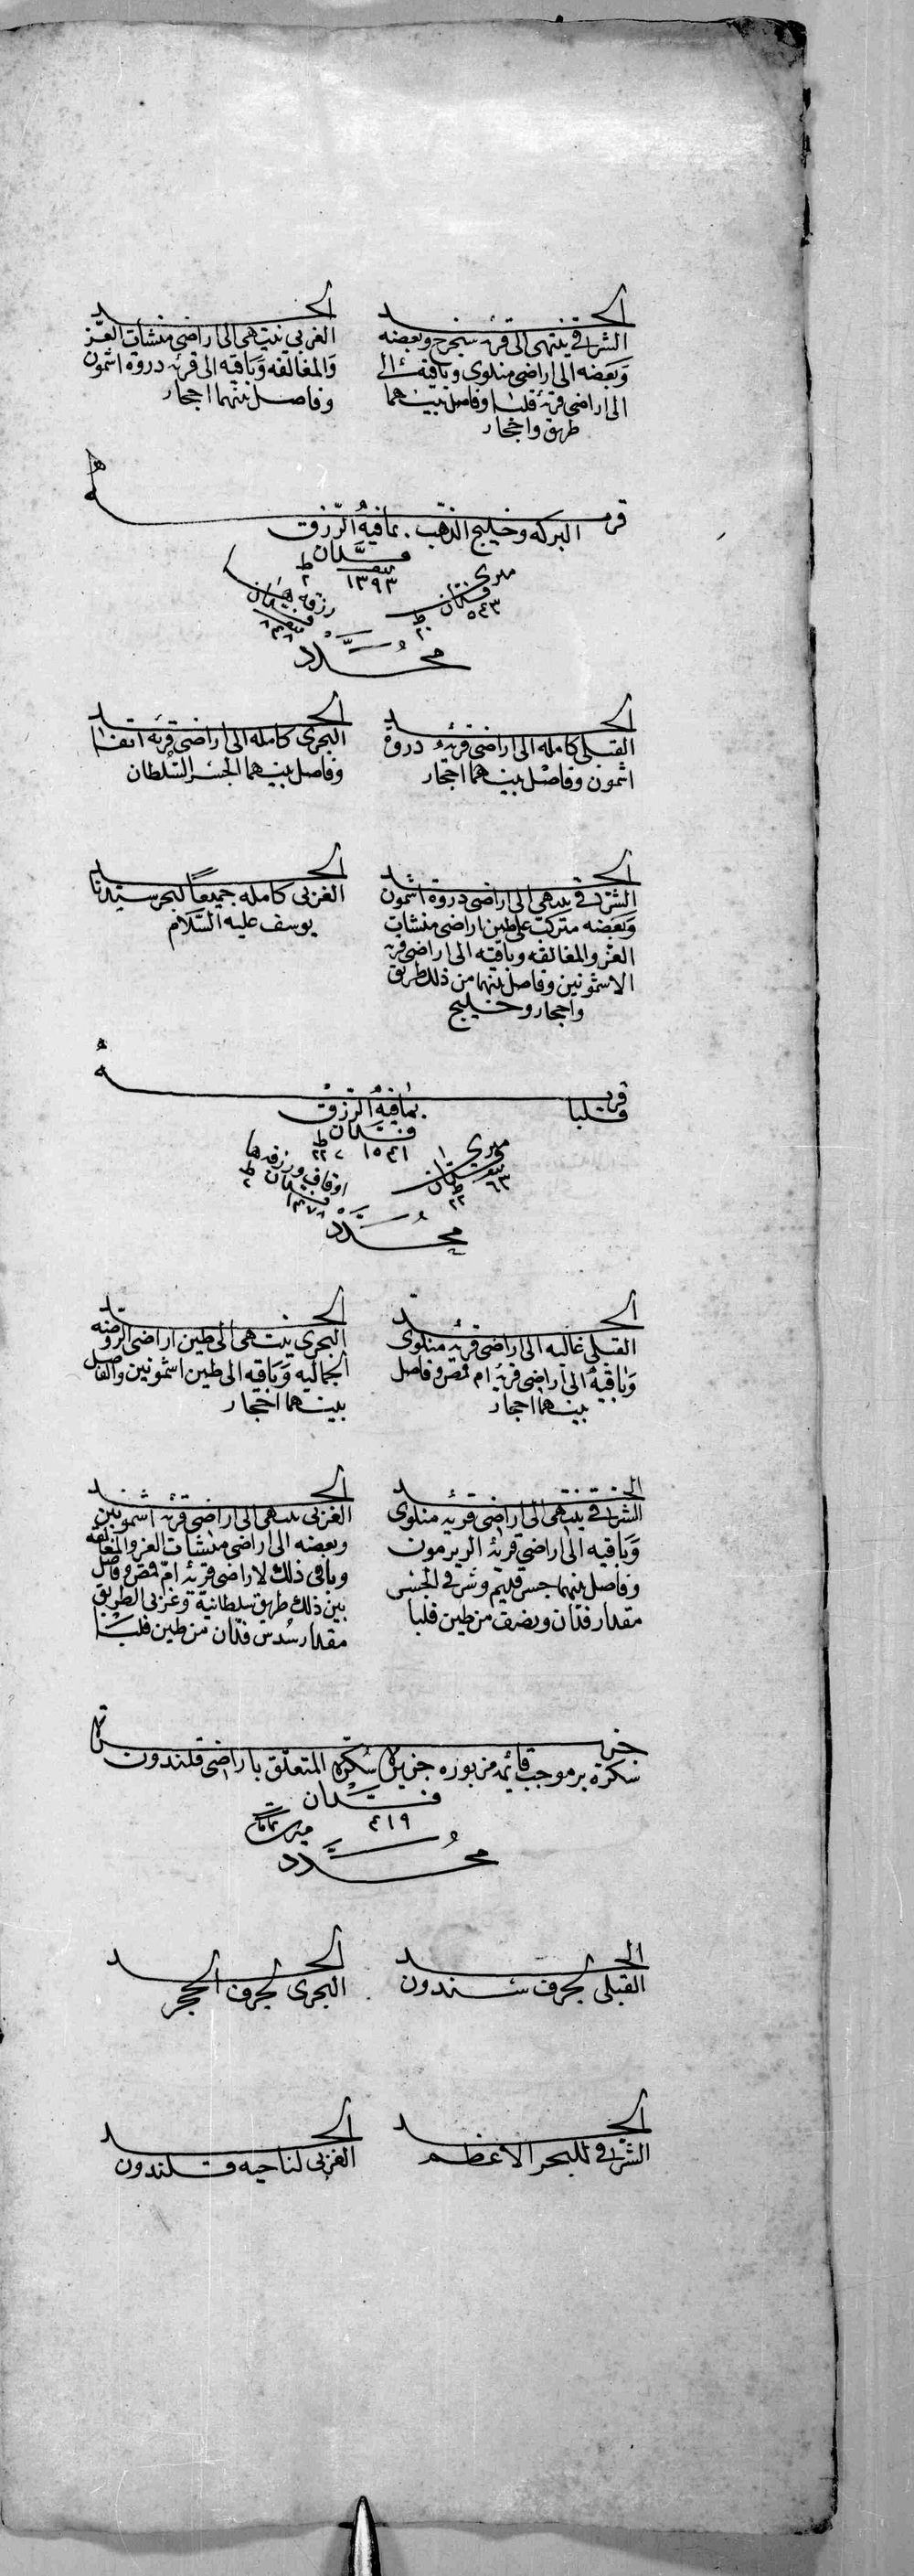 الحد
الشرقى ينتهى الى قريه سنجرج وبعضه
وبعضه الى اراضى منلوى وباقيه الى
الى اراضى قرية قلبا وفاصل بينهما
طريق واحجار
الحد
الغربي ينتهى الى اراضى منشات العز
والمغالقه وباقيه الى قريه دروة اشمون
وفاصل بينهما احجار
قريه
البركه وخليج الذهب بمافيه الرزق
فدان
١٣٩٣ ط ٢
ميرى
فدان
٥٤٣ ط ٢٠
رزقه
فدان
محدد
الحد
القبلى كامله الى اراضى قريه دروة
اشمون وفاصل بينهما احجار
الحد
البحرى كامله الى اراضى قريه
وفاصل بينهما الجسر السلطان
الحد
الشرقى ينتهى الى اراضى دروة اشمون
وبعضه على طين اراضى منشات
العز والمغالقه وباقيه الى اراضى قريه
الاشمونين وفاصل بينهما من ذلك طريق
واحجار وخليج
الحد
الغربى كامله جميعاً لبحر سيدنا
يوسف عليه السلام
قريه
قلبا
بمافيه الرزق
فدان
١٥٤١ ط ٢٢
ميرى
فدان
٦٣ ط ٢٢
اوقاف ورزقه
فدان
١٤٧٨ ط
محدد
الحد
القبلى غالبه الى اراضى قريه منلوى
وباقيه الى اراضى قريه ام قمص وفاصل
بينهما احجار
الحد
البحرى ينتهى الى طين اراضى الروضه
الجماليه وباقيه الى طين اشمونين والفاصل
بينهما احجار
الحد
الشرقى ينتهى الى اراضى قريه منلوى
وباقيه الى اراضي قرية الريرمون
وفاصل بينهما جسر قديم وشرقى الجسر
مقدار فدان ونصف من طين قلبا
الحد
الغربى ينتهى الى اراضى قريه اشمونين
وبعضه الى اراضى منشات العز والمغالقه
وباقى ذلك لاراضى قرية ام قمص وفاصل
بين ذلك طريق سلطانية وغربى الطريق
مقدار سدس فدان من طين قلبا
جزيره
سكرة بر موجب قائمه مزبوره جزيرة سكرة المتعلق باراضى قلندون
فدان
٤١٩
محدد
الحد
القبلى لجرف سندون
الحد
البحرى لجرف الحجر
الحد
الشرقى للبحر الاعظم
الحد
الغربى لناحيه قلندون